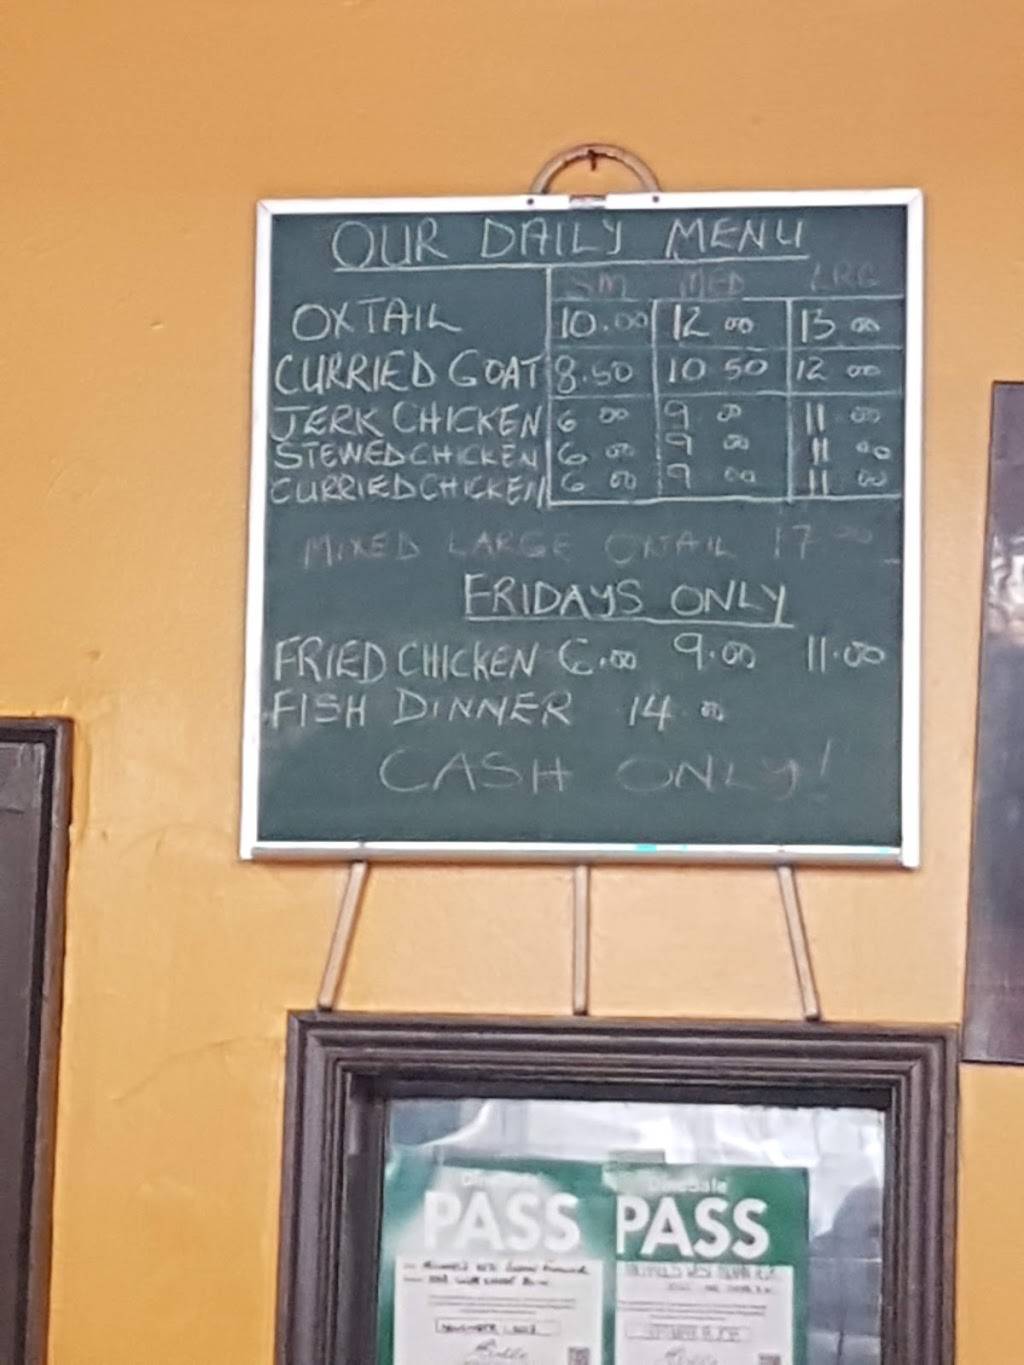 OUR DAILY MENU
SM MED LRG
OXTAIL 10.00 12 00 13 00
CURRIED GOAT 8.50 10 50 12 00
JERK CHICKEN 6 00 9 00 11 00
STEWED CHICKEN 6 00 9 00 11 00
CURRIED CHICKEN 6 00 9 00 11 00
MIXED LARGE OXTAIL 17 00
FRIDAYS ONLY
FRIED CHICKEN 6.00 9.00 11.00
FISH DINNER 14 00
CASH ONLY!
PASS PASS